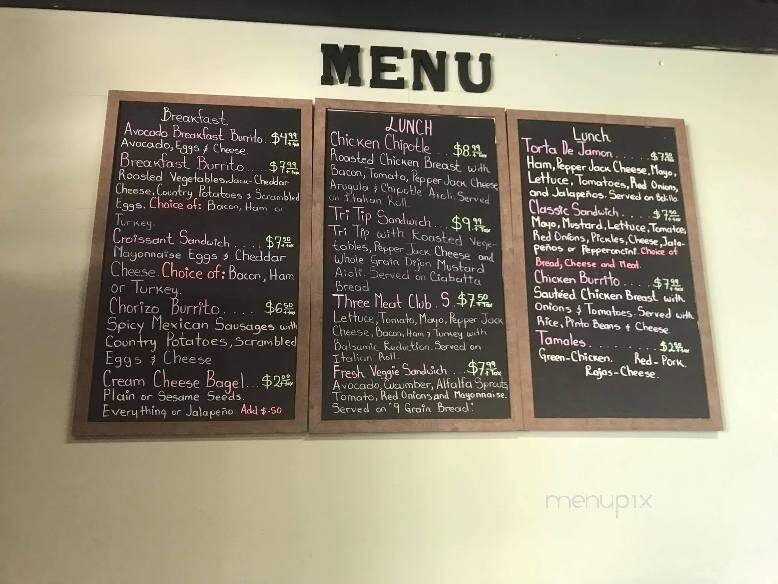 MENU
Breakfast
Avocado Breakfast Burrito. $4.99 +Tax
Avocado, Eggs & Cheese
Breakfast Burrito..... $7.99 +Tax
Roasted Vegetables, Jack-Cheddar
Cheese, Country Potatoes & Scrambled
Eggs. Choice of: Bacon, Ham or
Turkey.
Croissant Sandwich .... $7.50 +Tax
Mayonnaise Eggs & Cheddar
Cheese. Choice of: Bacon, Ham
or Turkey.
Chorizo Burrito..... $6.50 +Tax
Spicy Mexican Sausages with
Country Potatoes, Scrambled
Eggs & Cheese
Cream Cheese Bagel.. $2.00 +Tax
Plain or Sesame Seeds.
Everything or Jalapeño Add $.50
LUNCH
Chicken Chipotle.. $8.99 +Tax
Roasted Chicken Breast with
Bacon, Tomato, Pepper Jack Cheese
Arugula & Chipotle Aioli. Served
on Italian Roll.
Tri Tip Sandwich... $9.99 +Tax
Tri Tip with Roasted Vege-
tables, Pepper Jack Cheese and
Whole Grain Dijon Mustard
Aioli. Served on Ciabatta
Bread
Three Meat Club. S. $7.50 +Tax
Lettuce, Tomato, Mayo, Pepper Jack
Cheese, Bacon, Ham & Turkey with
Balsamic Reduction. Served on
Italian Roll.
Fresh Veggie Sandwich... $7.99 +Tax
Avocado, Cucumber, Alfalfa Sprouts
Tomato, Red Onions and Mayonnaise.
Served on "9 Grain Bread".
Lunch
Torta De Jamon...... +Tax
Ham, Pepper Jack Cheese, Mayo,
Lettuce, Tomatoes, Red Onions,
and Jalapeños. Served on
Classic Sandwich..... $7.50 +Tax
Mayo, Mustard, Lettuce, Tomatoes
Red Onions, Pickles, Cheese, Jala-
peños or Pepperoncini. Choice of
Bread, Cheese and Meat.
Chicken Burrito.... $7.99 +Tax
Sautéed Chicken Breast with
Onions & Tomatoes. Served with
Rice, Pinto Beans & Cheese
Tamales......... $2.99 +Tax
Green-Chicken. Red-Pork.
Rajas-Cheese.
menupix